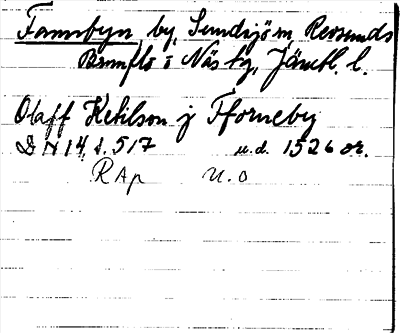 Fannbyn, by, Sundsjö sn, Revsunds
Brunflo o Näs tg, Jämtl. l.
Olaff Ketilson j Fforneby
DN 14, s. 517 u.d. 1526 or.
RAp U.O